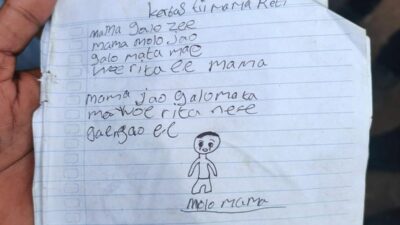 kertas tii mama Reti
mama galo zee
mama molo Jao
galo mata mae
woe rita ee mama
mama Jao galo mata
mawoe rita nese
gaengao ee
molo mama